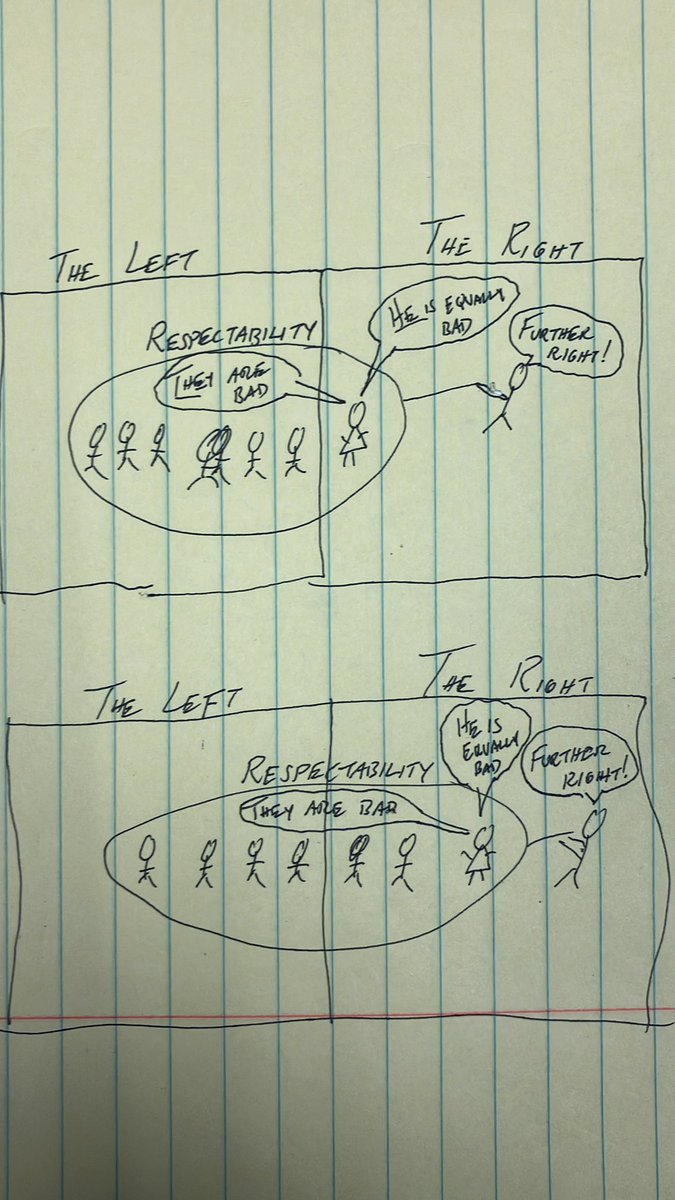 THE LEFT
THE RIGHT
RESPECTABILITY
THEY ARE
BAD
HE IS EQUALLY
BAD
FURTHER
RIGHT!
THE LEFT
THE RIGHT
RESPECTABILITY
THEY ARE BAD
HE IS
EQUALLY
BAD
FURTHER
RIGHT!